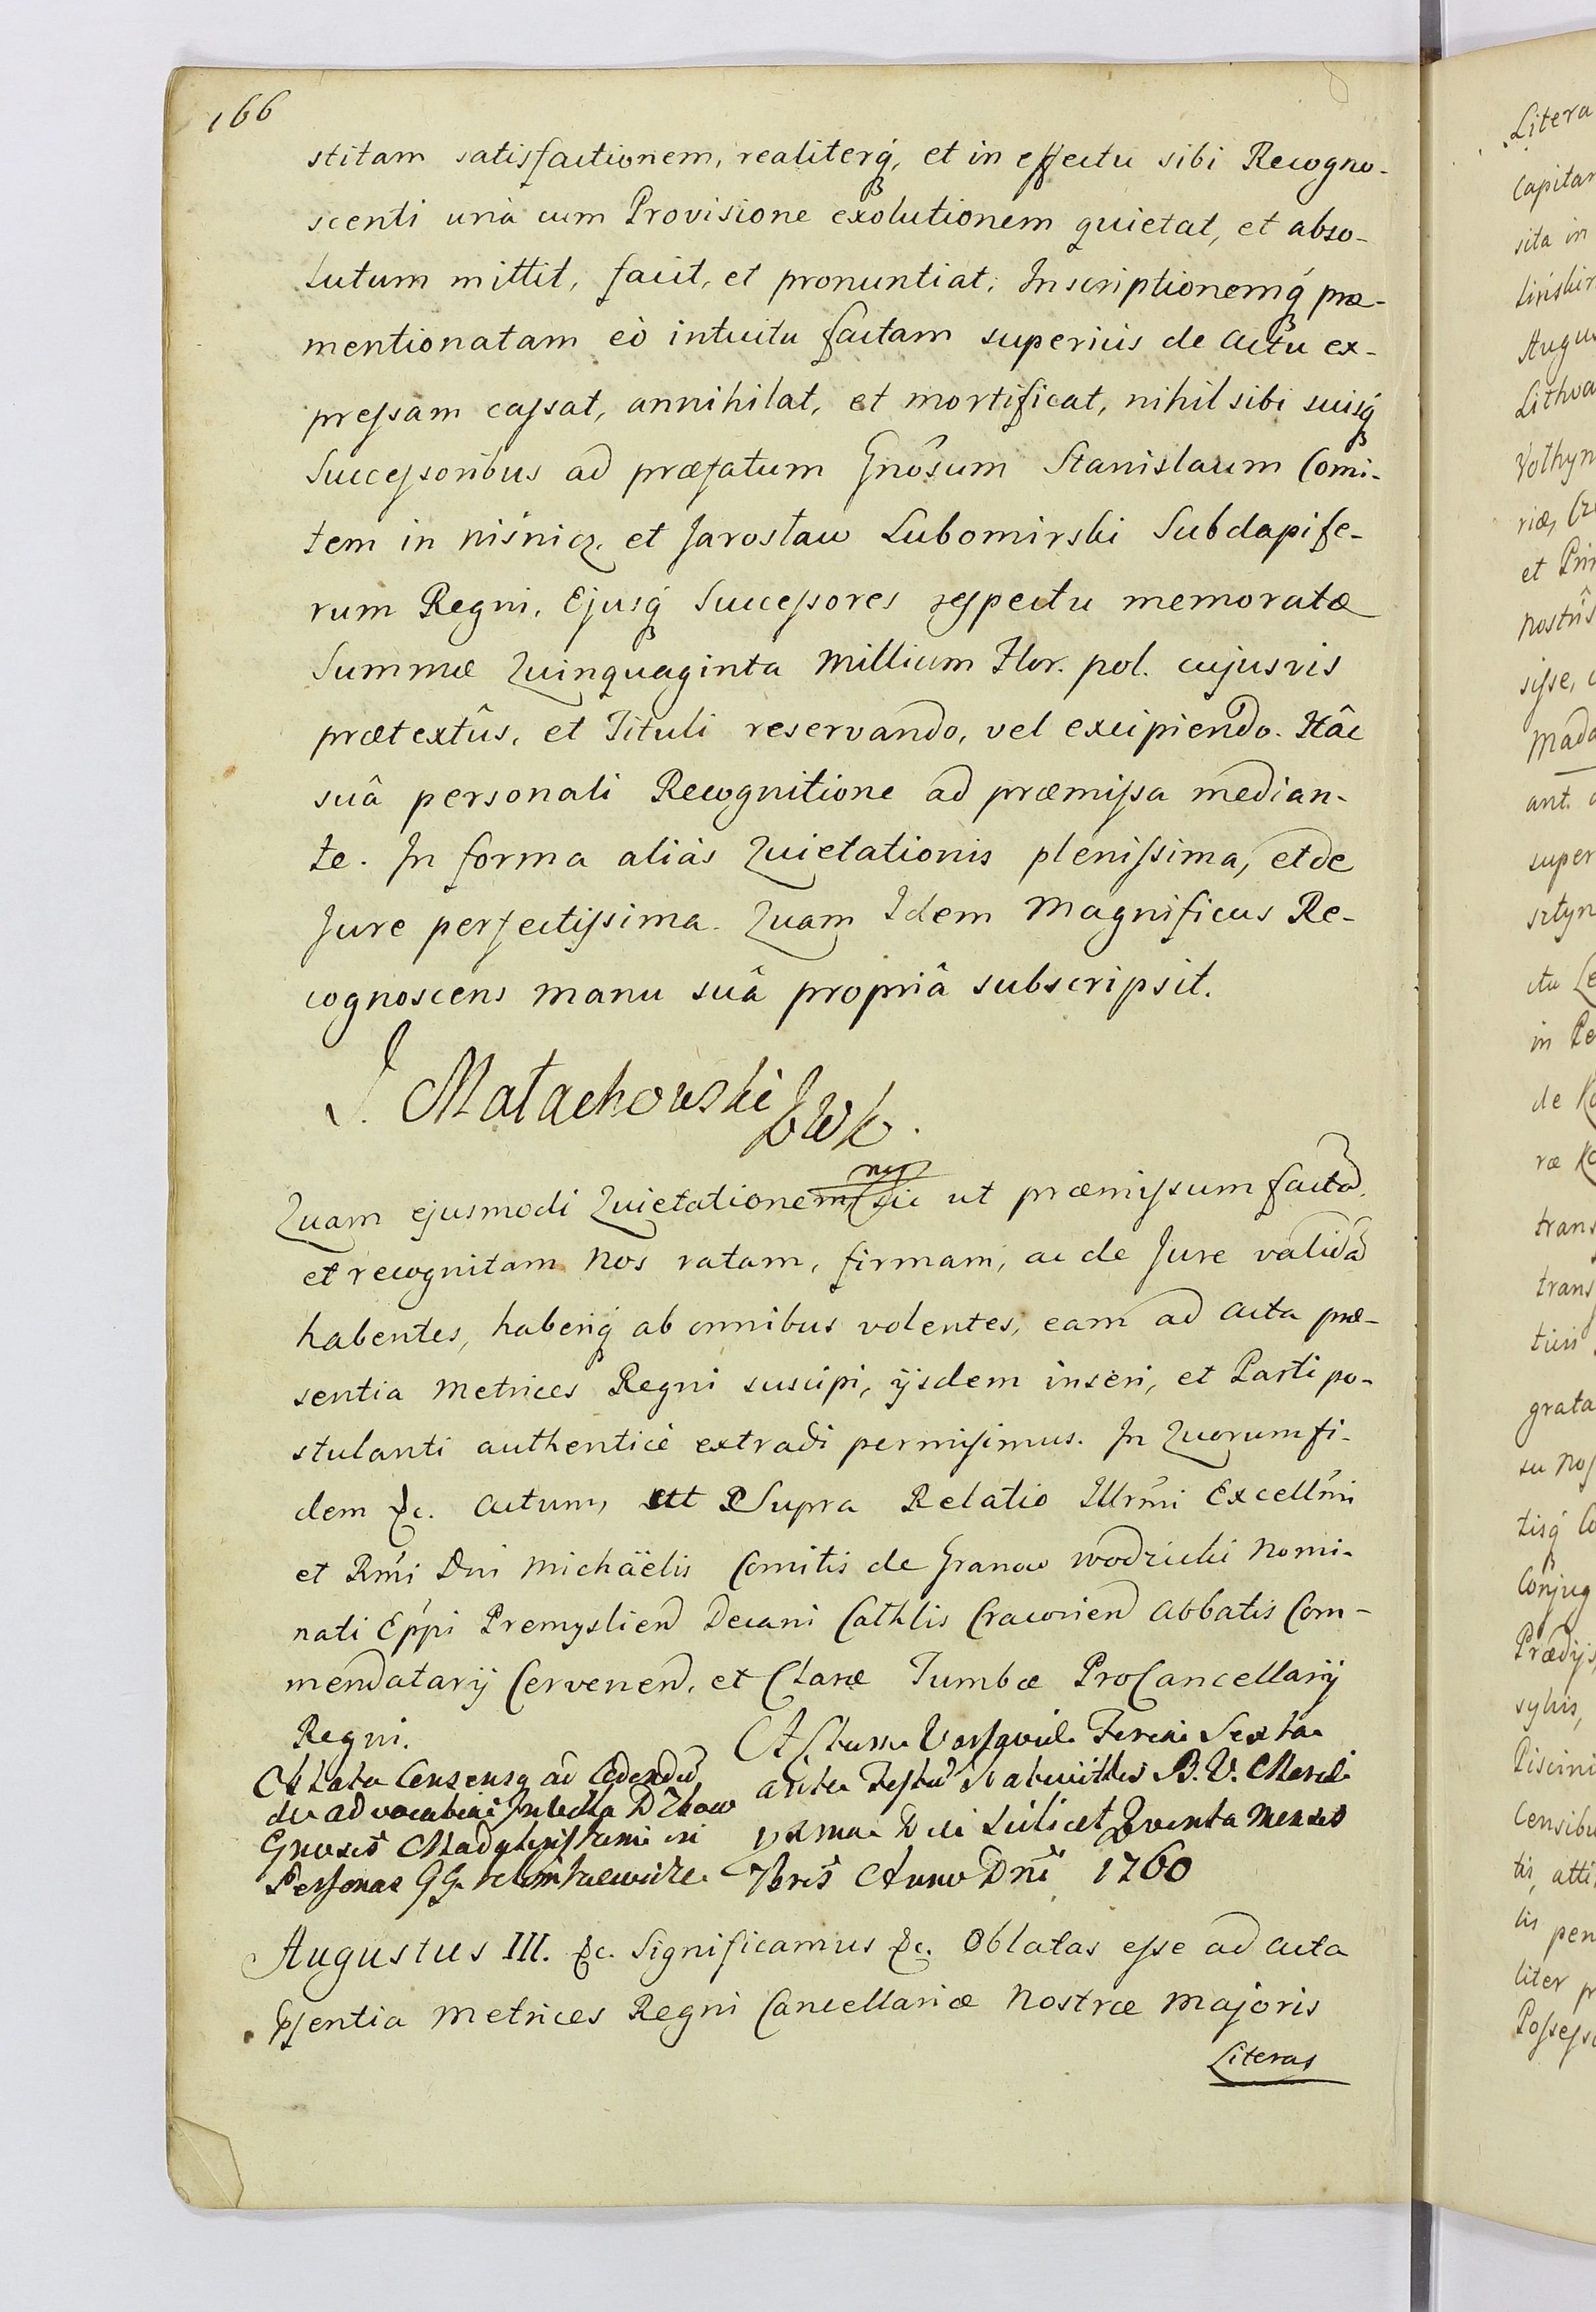 166
stitam satisfactionem, realiterq́, et in effectu sibi Recogno-
scenti unà cum Provisione exolutionem quietat, et abso-
lutum mittit, facit, et pronuntiat, Inscriptionemq́ præ-
mentionatam eò intuitu factam superiùs de actu ex-
preſsam caſsat, annihilat, et mortificat, nihil sibi suisq́
Succeſsoribus ad præfatum Gnôsum Stanislaum Comi-
tem in Niśnicz, et Jarosław Lubomirski Subdapife-
rum Regni, Ejusq́ Succeſsores respectu memoratæ
Summæ Quinquaginta Millium Flor. pol. cujusvis
prætextûs, et Tituli reservando, vel excipiendo. Hâc
suâ personali Recognitione ad præmiſsa median-
te. In forma aliàs Quietationis pleniſsima, et de
Jure perfectiſsima. Quam Idem Magnificus Re-
cognoscens manu suâ propriâ subscripsit.
J. Małachowski KWK.
Quam ejusmodi Quietationem sic ut præmiſsum factã,
et recognitam Nos ratam, firmam, ac de Jure validã
habentes, haberiq́ ab omnibus volentes, eam ad Acta præ-
sentia Metrices Regni suscipi, ijsdem inseri, et Parti po-
stulanti authenticè extradi permiſimus. In Quorum fi-
dem &c. Actum, ut Supra Relatio Illrmi Excellmi
et Rmi Dni Michäelis Comitis de Granow Wodzicki Nomi-
nati Eppi Premyslien Decani Cathlis Cracovien Abbatis Com-
mendatarij Cervenen, et Claræ Tumbæ ProCancellarij
Regni.
Actum Varsaviæ Feria Sexta
Oblata Consensq ad Cedendũ
ante Festũ Nativittis B. V. Mariæ
de advocatiæ
Personas GG.
Die Scilicet Quinta Mensis
7bris Anno Dni 1760
Augustus III. &c. Significamus &c. Oblatas eſse ad Acta
Pſentia Metrices Regni Cancellariæ Nostræ Majoris
Literas
Litera
Capitan
sita in
Augus
Lithva
Volhyn
et Prin
nostris
siſse,
Mada
ant.
super
in
de
trans
trans
grata
su
Conjug
Prædijs
Piscini
Censibu
tis, atti
lis pen
liter
Poſseſs